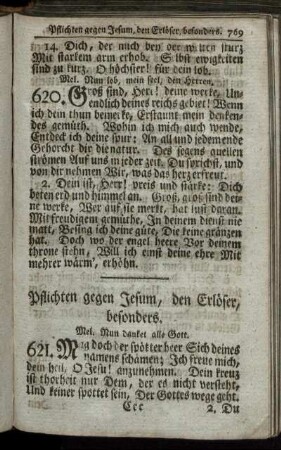 Pflichten gegen Jesum, den Erlöser, besonders. 769
14. Dich, der mich
Mit starkem arm erhob. Selbst ewigkeiten
sind zu kurz, O höchster! für dein lob.
Mel. Nun lob, mein seel, den Herren.
620. Groß sind, Herr! deine werke, Un-
endlich deines reichs gebiet! Wenn
ich dein thun bemerke, Erstaunt mein denken-
des gemüth. Wohin ich mich auch wende,
Entdeck ich deine spur: An all und jedem ende
Gehorcht dir die natur. Des segens quellen
strömen Auf uns in jeder zeit. Du sprichst, und
von dir nehmen Wir, was das herz erfreut.
2. Dein ist, Herr! preis und stärke: Dich
beten erd und himmel an. Groß, groß sind dei-
ne werke, Wer auf sie merkt, hat lust daran.
Mit freudigem gemüthe, In deinem dienst nie
matt, Besing ich deine güte, Die keine gränzen
hat. Doch wo der engel heere Vor deinem
throne stehn, Will ich einst deine ehre Mit
mehrer wärm', erhöhn.
Pflichten gegen Jesum, den Erlöser,
besonders.
Mel. Nun danket alle Gott.
621. Mag doch der spötter heer Sich deines
namens schämen; Ich freue mich,
dein heil, O Jesu! anzunehmen. Dein kreuz
ist thorheit nur Dem, der es nicht versteht,
Und keiner spottet sein, Der Gottes wege geht.
Ccc 2. Du